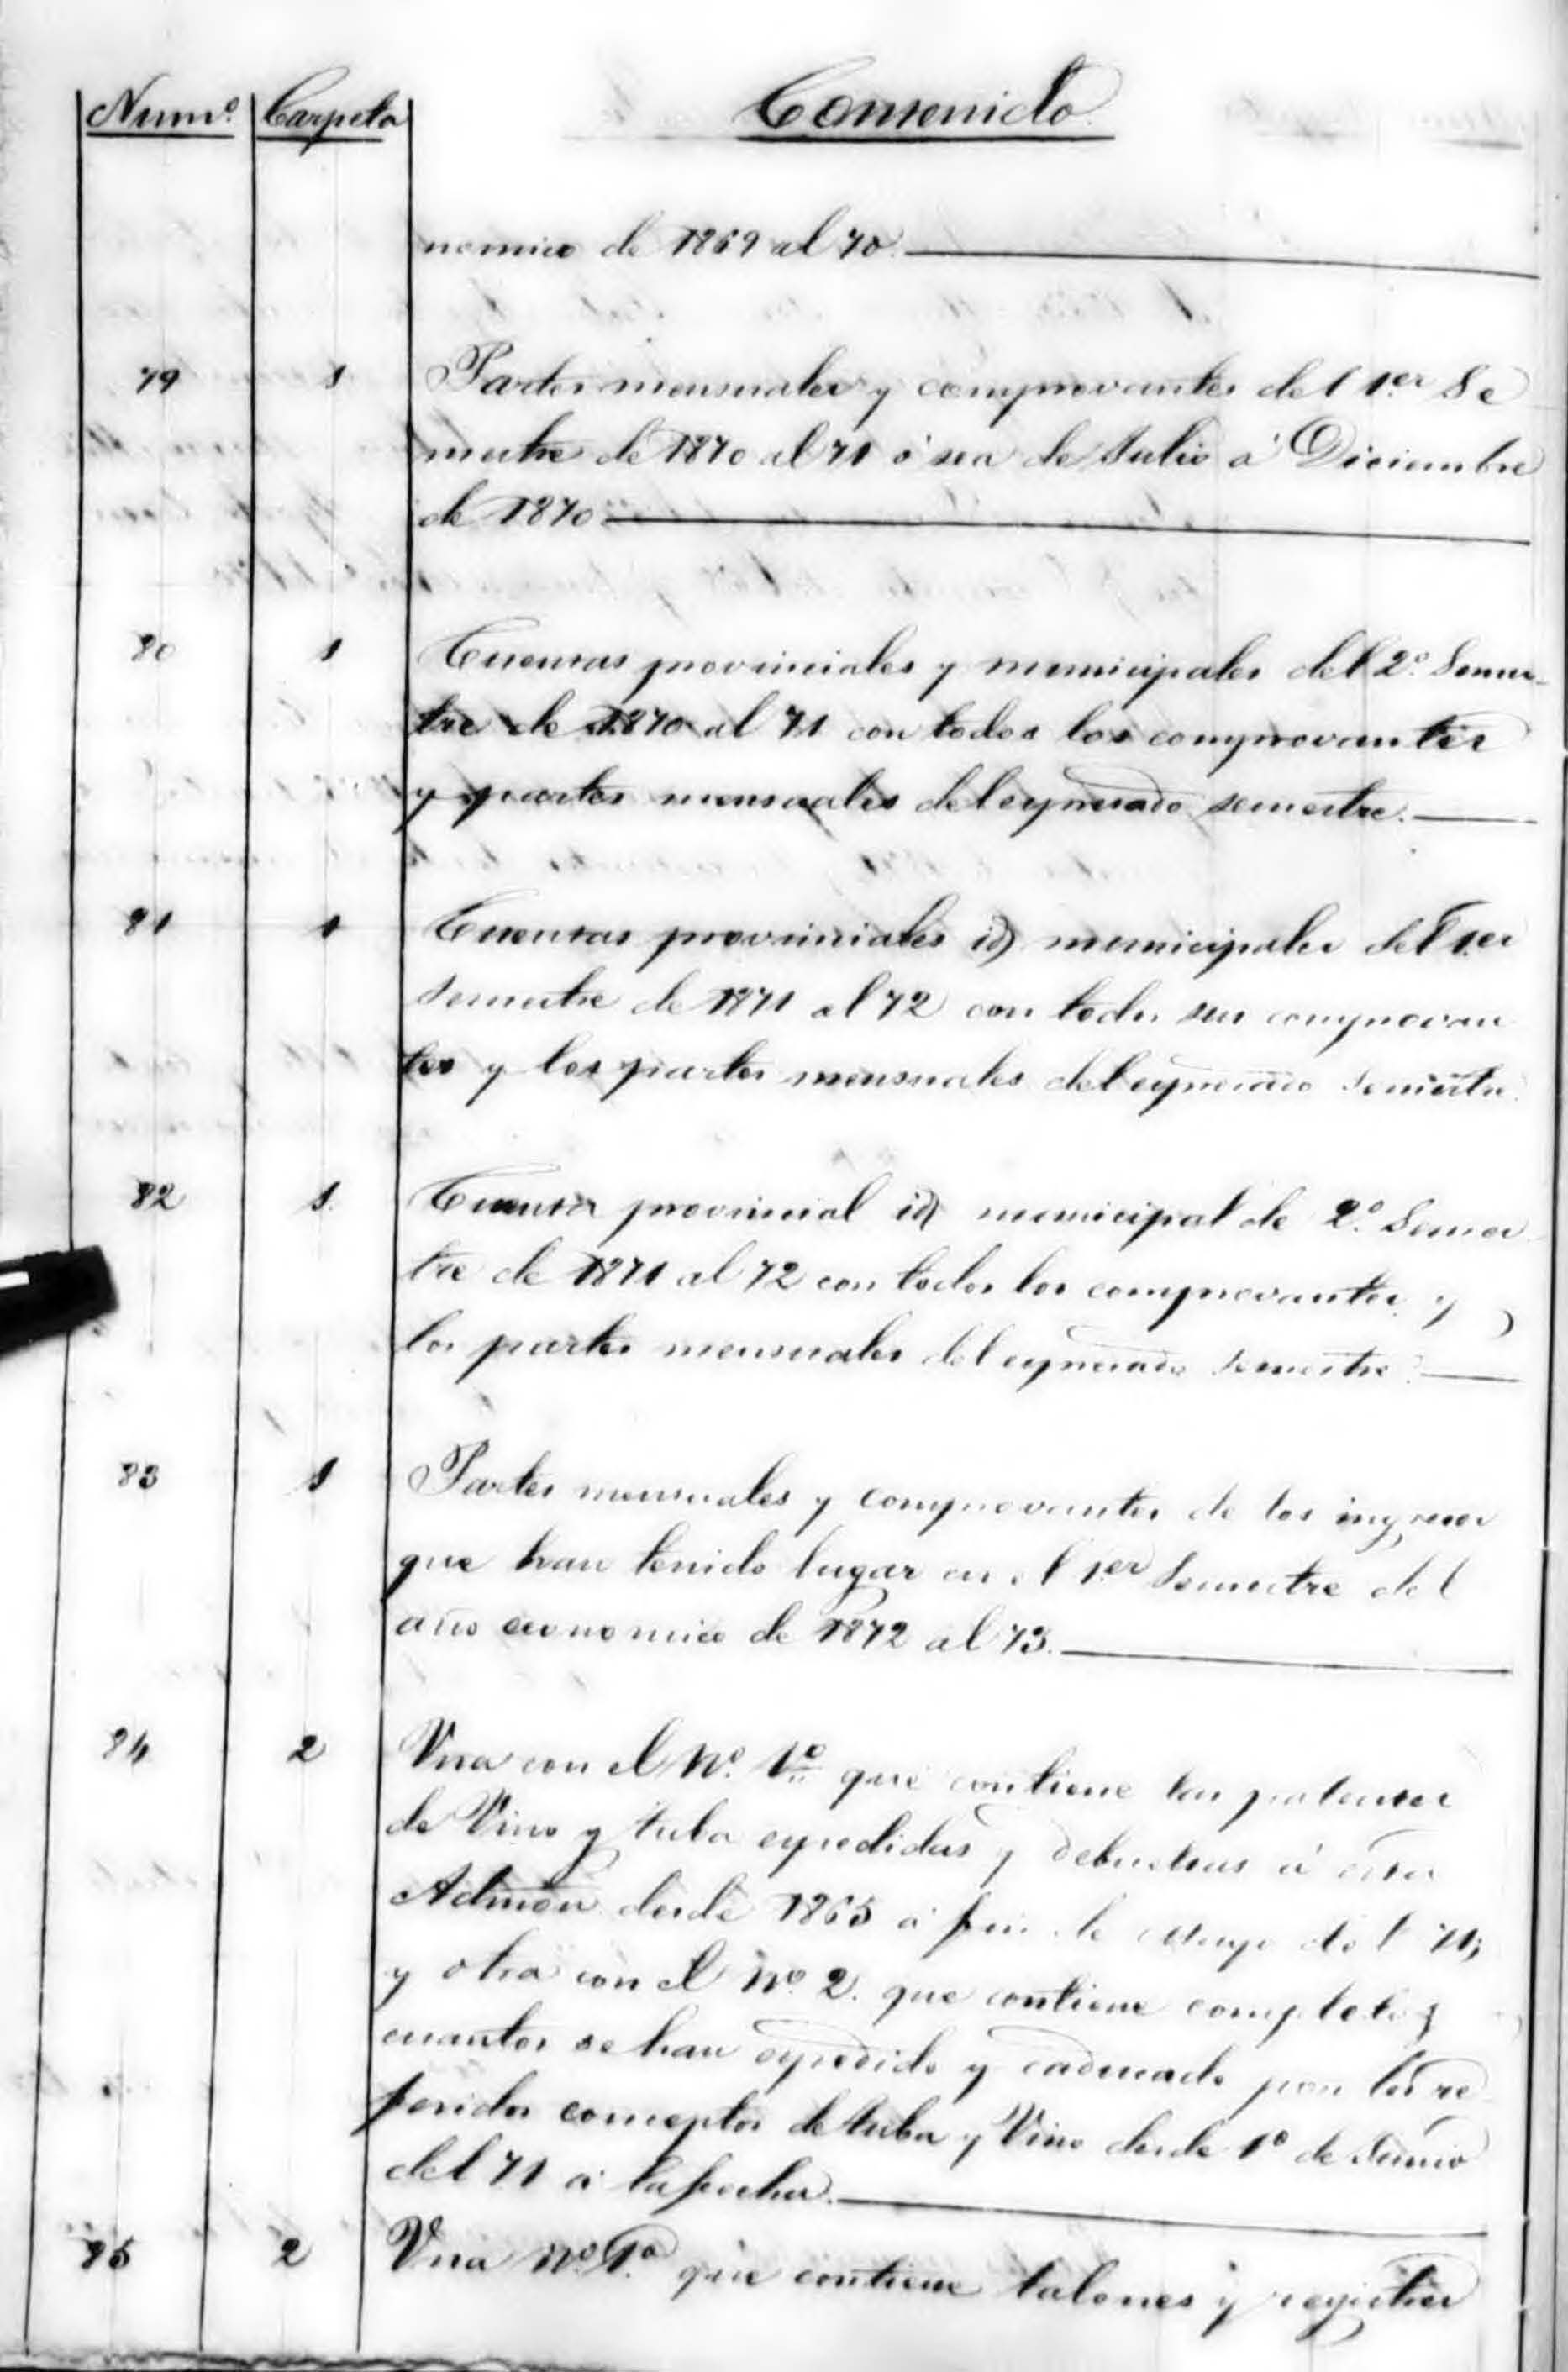 Numº. Carpeta Contenido
nomico de 1869 al 70.
79 1 Partes mensuales y comprovantes del 1.er Se
mestre de 1870 al 71 ó sea de Julio á Diciembre
de 1870
80 1 Cuentas provinciales y municipales del 2º. Semes-
tre de 1870 al 71 con todos los comprovantes
y partes mensuales del expresado semestre.
81 1 Cuentas provinciales id municipales del 1.er
semestre de 1871 al 72 con todos sus comprovan
tes y los partes mensuales del expresado semestre.
82 1. Cuenta provincial id municipal de 2º. Semes
tre de 1871 al 72 con todos los comprovantes y
los partes mensuales del expresado semestre.
83 1 Partes mensuales y comprovantes de los ingresos
que han tenido lugar en el 1.er Semestre del
año economico de 1872 al 73.
84 2 Una con el Nº. 1º que contiene las patentes
de Vino y tuba expedidas y debueltas á esta
Admon desde 1865 á fin de Mayo del 71;
y otra con el Nº. 2. que contiene completos
cuantos se han expedido y caducado por los re
feridos conceptos de tuba y Vino desde 1º de Junio
del 71 á la fecha.
85 2 Una Nº. 1º. que contiene talones y registros